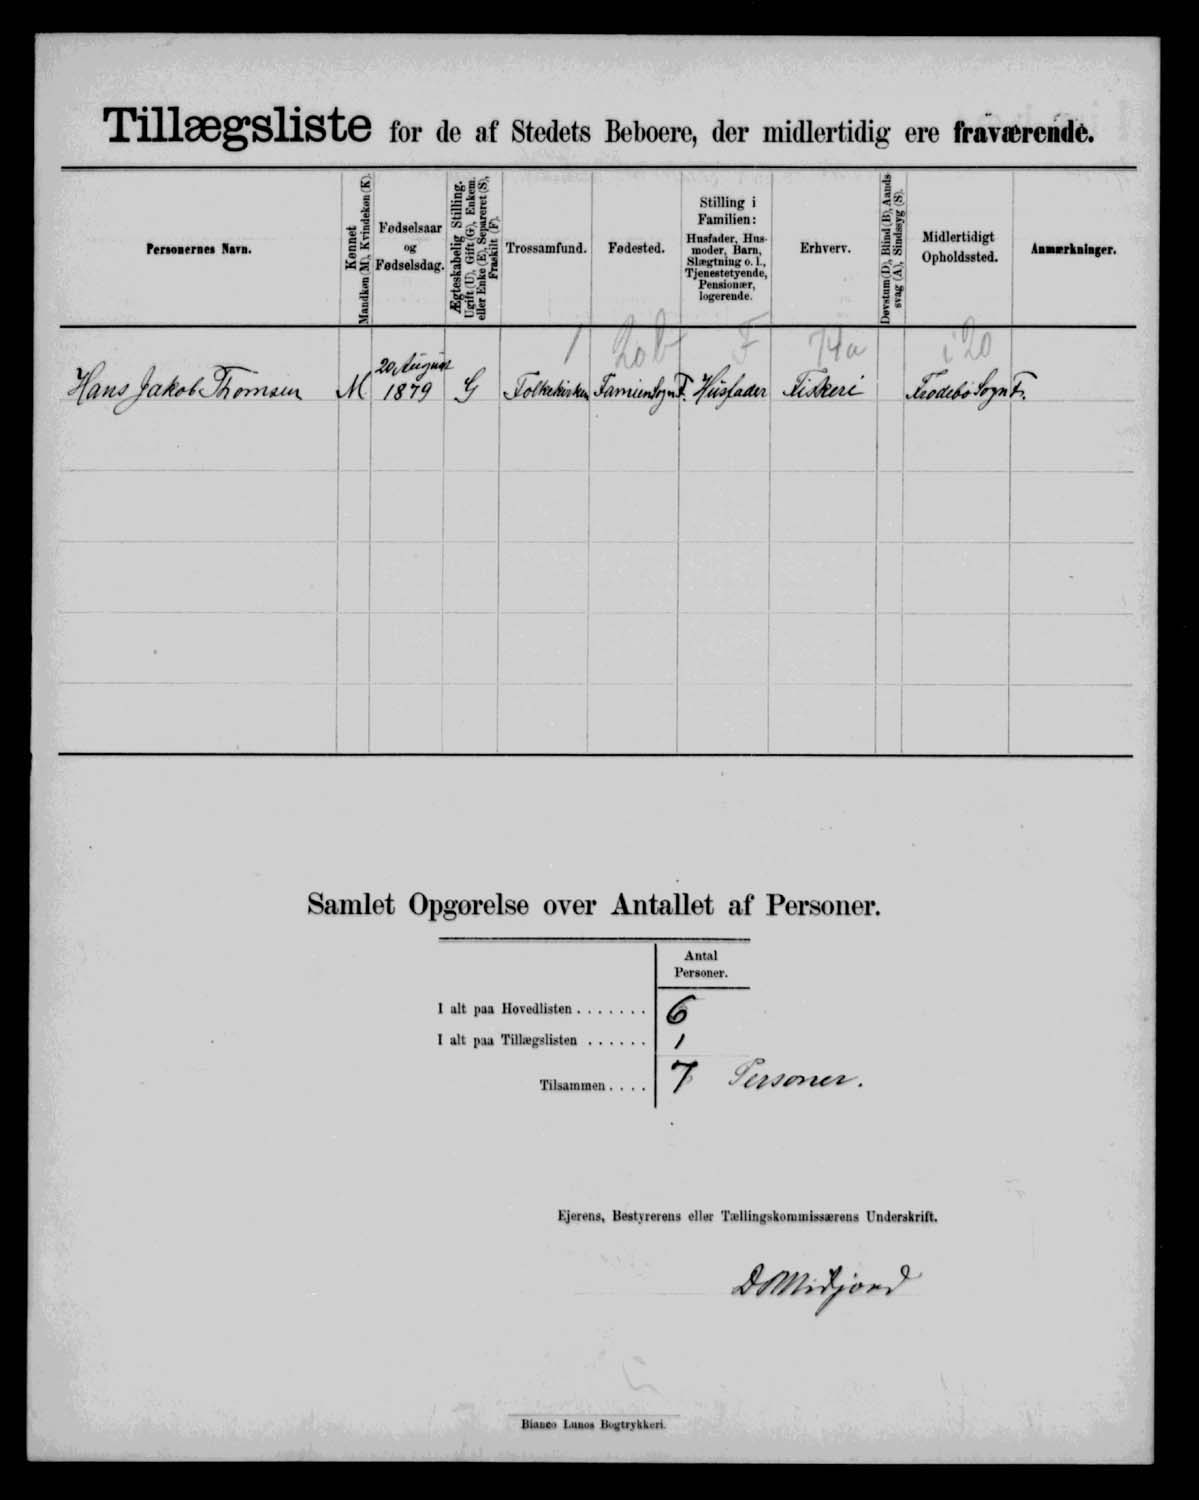 Tillægsliste for de af Stedets Beboere, der midlertidig ere fraværende.
Personernes Navn.
Kønnet
Mandkøn (M), Kvindekøn (K).
Fødselsaar
og
Fødselsdag.
Ægteskabelig Stilling.
Ugift (U), Gift (G), Enkem.
eller Enke (E), Separeret (S),
Fraskilt (F).
Trossamfund.
Fødested.
Stilling i
Familien:
Husfader, Hus-
moder, Barn,
Slægtning o. l.,
Tjenestetyende,
Pensionær,
logerende.
Erhverv.
Døvstum (D), Blind (B), Aands-
svag (A), Sindssyg (S).
Midlertidigt
Opholdssted.
Anmærkninger.
1 F 74a i 20
Hans Jakob Thomsen M 20 August 1879 G Folkekirken Famien Sogn F. Husfader Fiskeri Frodebø Sogn F.
Samlet Opgørelse over Antallet af Personer.
Antal
Personer.
I alt paa Hovedlisten . . . . . . . 6
I alt paa Tillægslisten . . . . . . 1
Tilsammen . . . . 7 Personer.
Ejerens, Bestyrerens eller Tællingskommissærens Underskrift.
D Midjord
Bianco Lunos Bogtrykkeri.